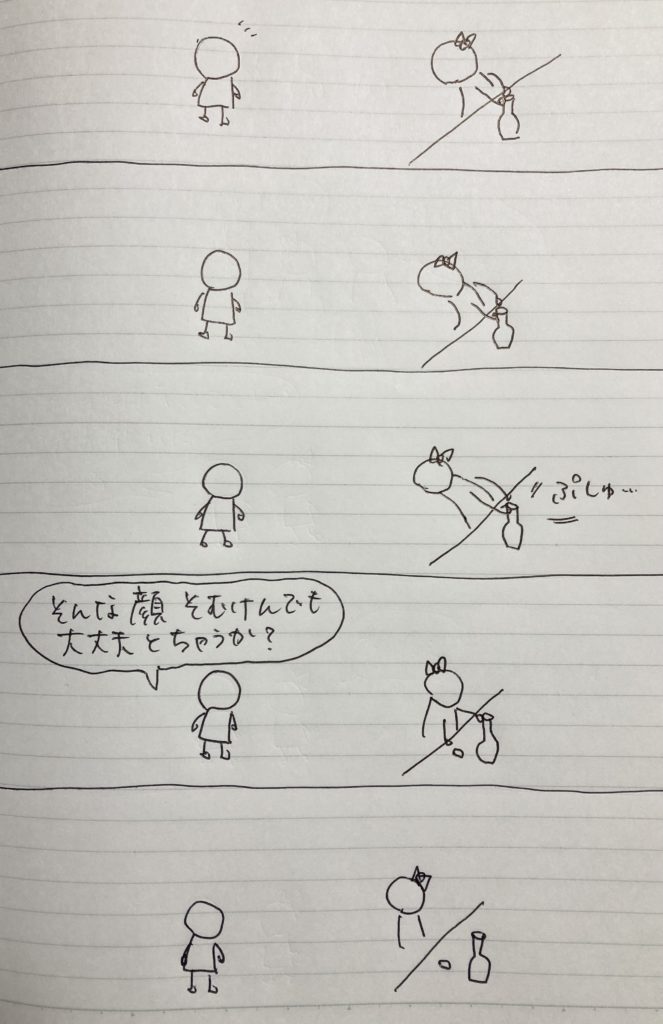 ぷしゅ…
そんな顔そむけんでも
大丈夫とちゃうか?